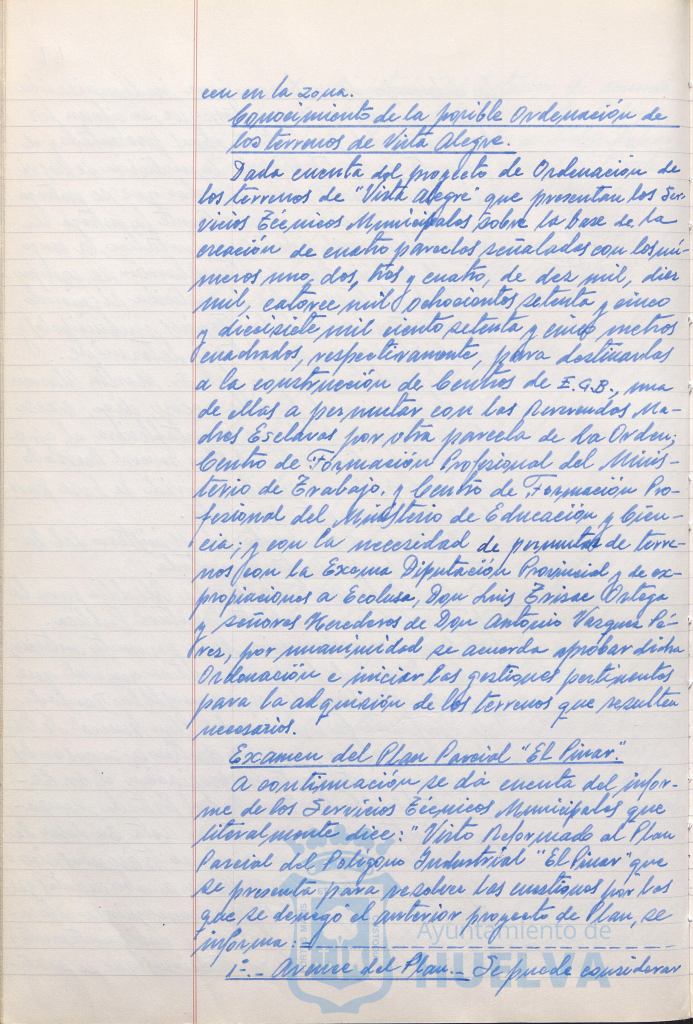 cen en la zona.
Conocimiento de la posible Ordenación de
los terrenos de Vista Alegre.
Dada cuenta del proyecto de Ordenación de
los terrenos de "Vista Alegre" que presentan los Ser-
vicios Técnicos Municipales sobre la base de la
creación de cuatro parcelas señaladas con los nú-
meros uno, dos, tres y cuatro, de diez mil, diez
mil, catorce mil ochocientos setenta y cinco
y diecisiete mil ciento setenta y cinco metros
cuadrados, respectivamente, para destinarlas
a la construcción de Centros de E.G.B., una
de ellas a permutar con las Reverendas Ma-
dres Esclavas por otra parcela de la Orden;
Centro de Formación Profesional del Minis-
terio de Trabajo, y Centro de Formación Pro-
fesional del Ministerio de Educación y Cien-
cia; y con la necesidad de permutas de terre-
nos con la Excma Diputación Provincial y de ex-
propiaciones a Ecolusa, Don Luis Ortega
y señores Herederos de Don Antonio Vazquez Pé-
rez, por unanimidad se acuerda aprobar dicha
Ordenación e iniciar las gestiones pertinentes
para la adquisión de los terrenos que resulten
necesarios.
Examen del Plan Parcial "El Pinar".
A continuación se dá cuenta del infor-
me de los Servicios Técnicos Municipales que
literalmente dice: "Visto Reformado al Plan
Parcial del Polígono Industrial "El Pinar" que
se presenta para resolver las cuestiones por las
que se denegó el anterior proyecto de Plan, se
informa:
1º.- Avance del Plan.- Se puede considerar
Ayuntamiento de
HUELVA